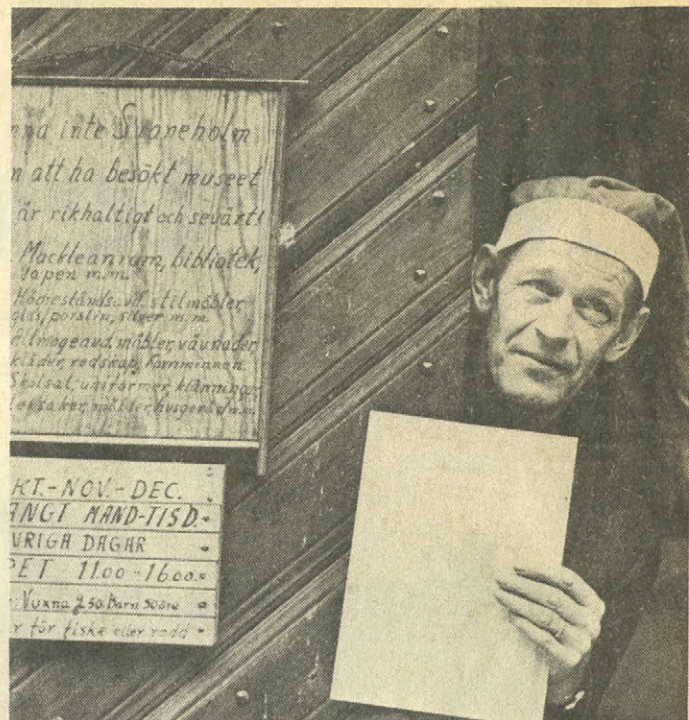 inte Svaneholm
att ha besökt museet
är rikhaltigt och sevärt!
Mackleanrum, bibliotek,
vapen m.m.
Högreståndsavd. stilmöbler
glas, porslin, silver m.m.
Allmogeavd. möbler, vävnader,
kläder, redskap, Fornminnen
Skolsal, uniformer, klänningar
leksaker, husgeråd m.m.
KT.-NOV.-DEC.
ÄNGT MÅND-TISD.
VRIGA DAGAR
PET 11.00-16.00.
Vuxna 2.50. Barn 50 öre
r för fiske eller rodd